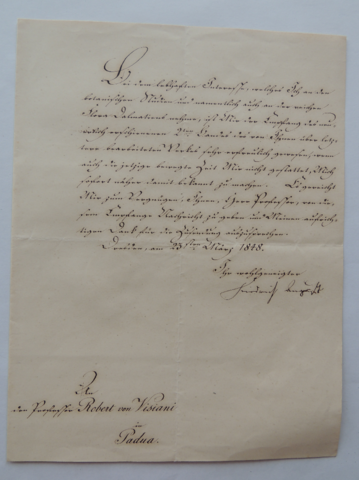 Bei dem lebhaften Interesse, welches Ich an den
botanischen Studien und namentlich auch an der reichen
Flora Dalmatiens nehme, ist Mir der Empfang des neu-
erschienenen 2ten Bandes des von Ihnen über letz-
tere bearbeiteten Werkes sehr erfreulich gewesen, wenn
auch die jetzige bewegte Zeit Mir nicht gestattet, Mich
sofort näher damit bekannt zu machen. Es gereicht
Mir zum Vergnügen, Ihnen, Herr Professor, von des-
sen Empfange Nachricht zu geben und Meinen aufrich-
tigen Dank für die Zusendung auszusprechen.
Dresden, am 23sten März 1848.
Ihr wohlgeneigter
Friedrich August
An
den Professor Robert von Visiani
in
Padua.